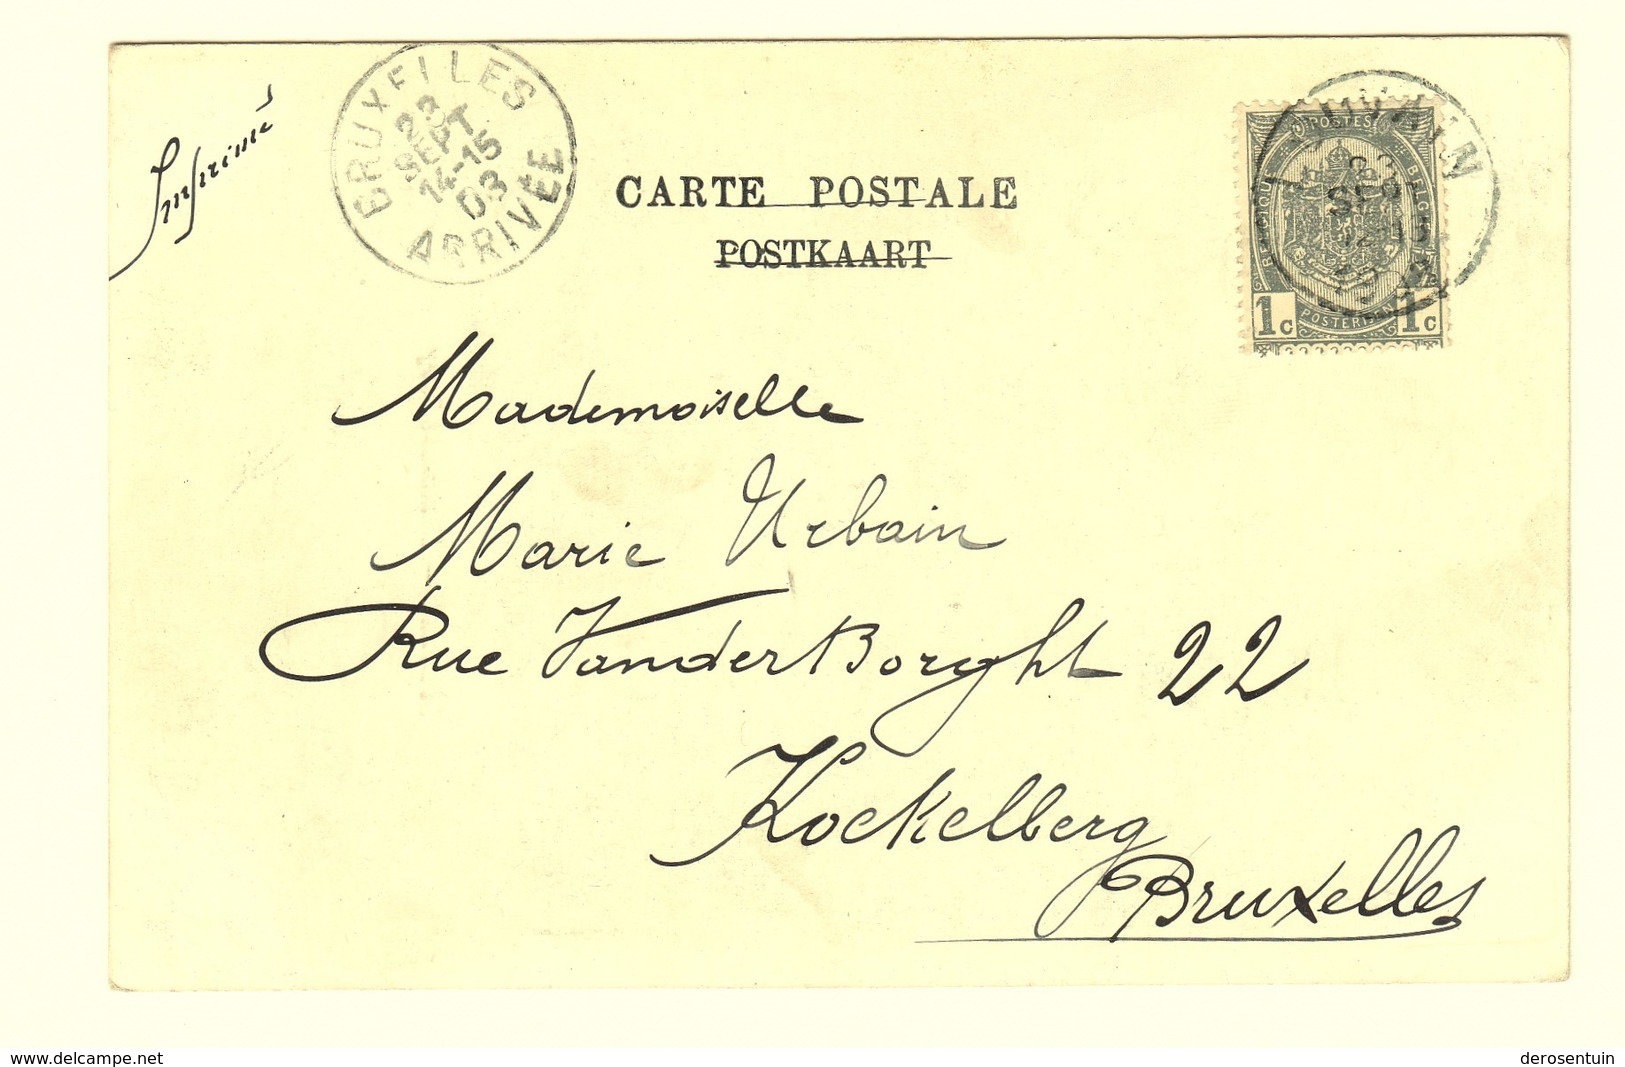 Imprimé
BRUXELLES
23
SEPT
14-15
03
ARRIVÉE
CARTE POSTALE
POSTKAART
POSTES
1c 1c
Mademoiselle
Marie Urbain
Rue VanderBorght 22
Kockelberg
Bruxelles
www.delcampe.net
derosentuin